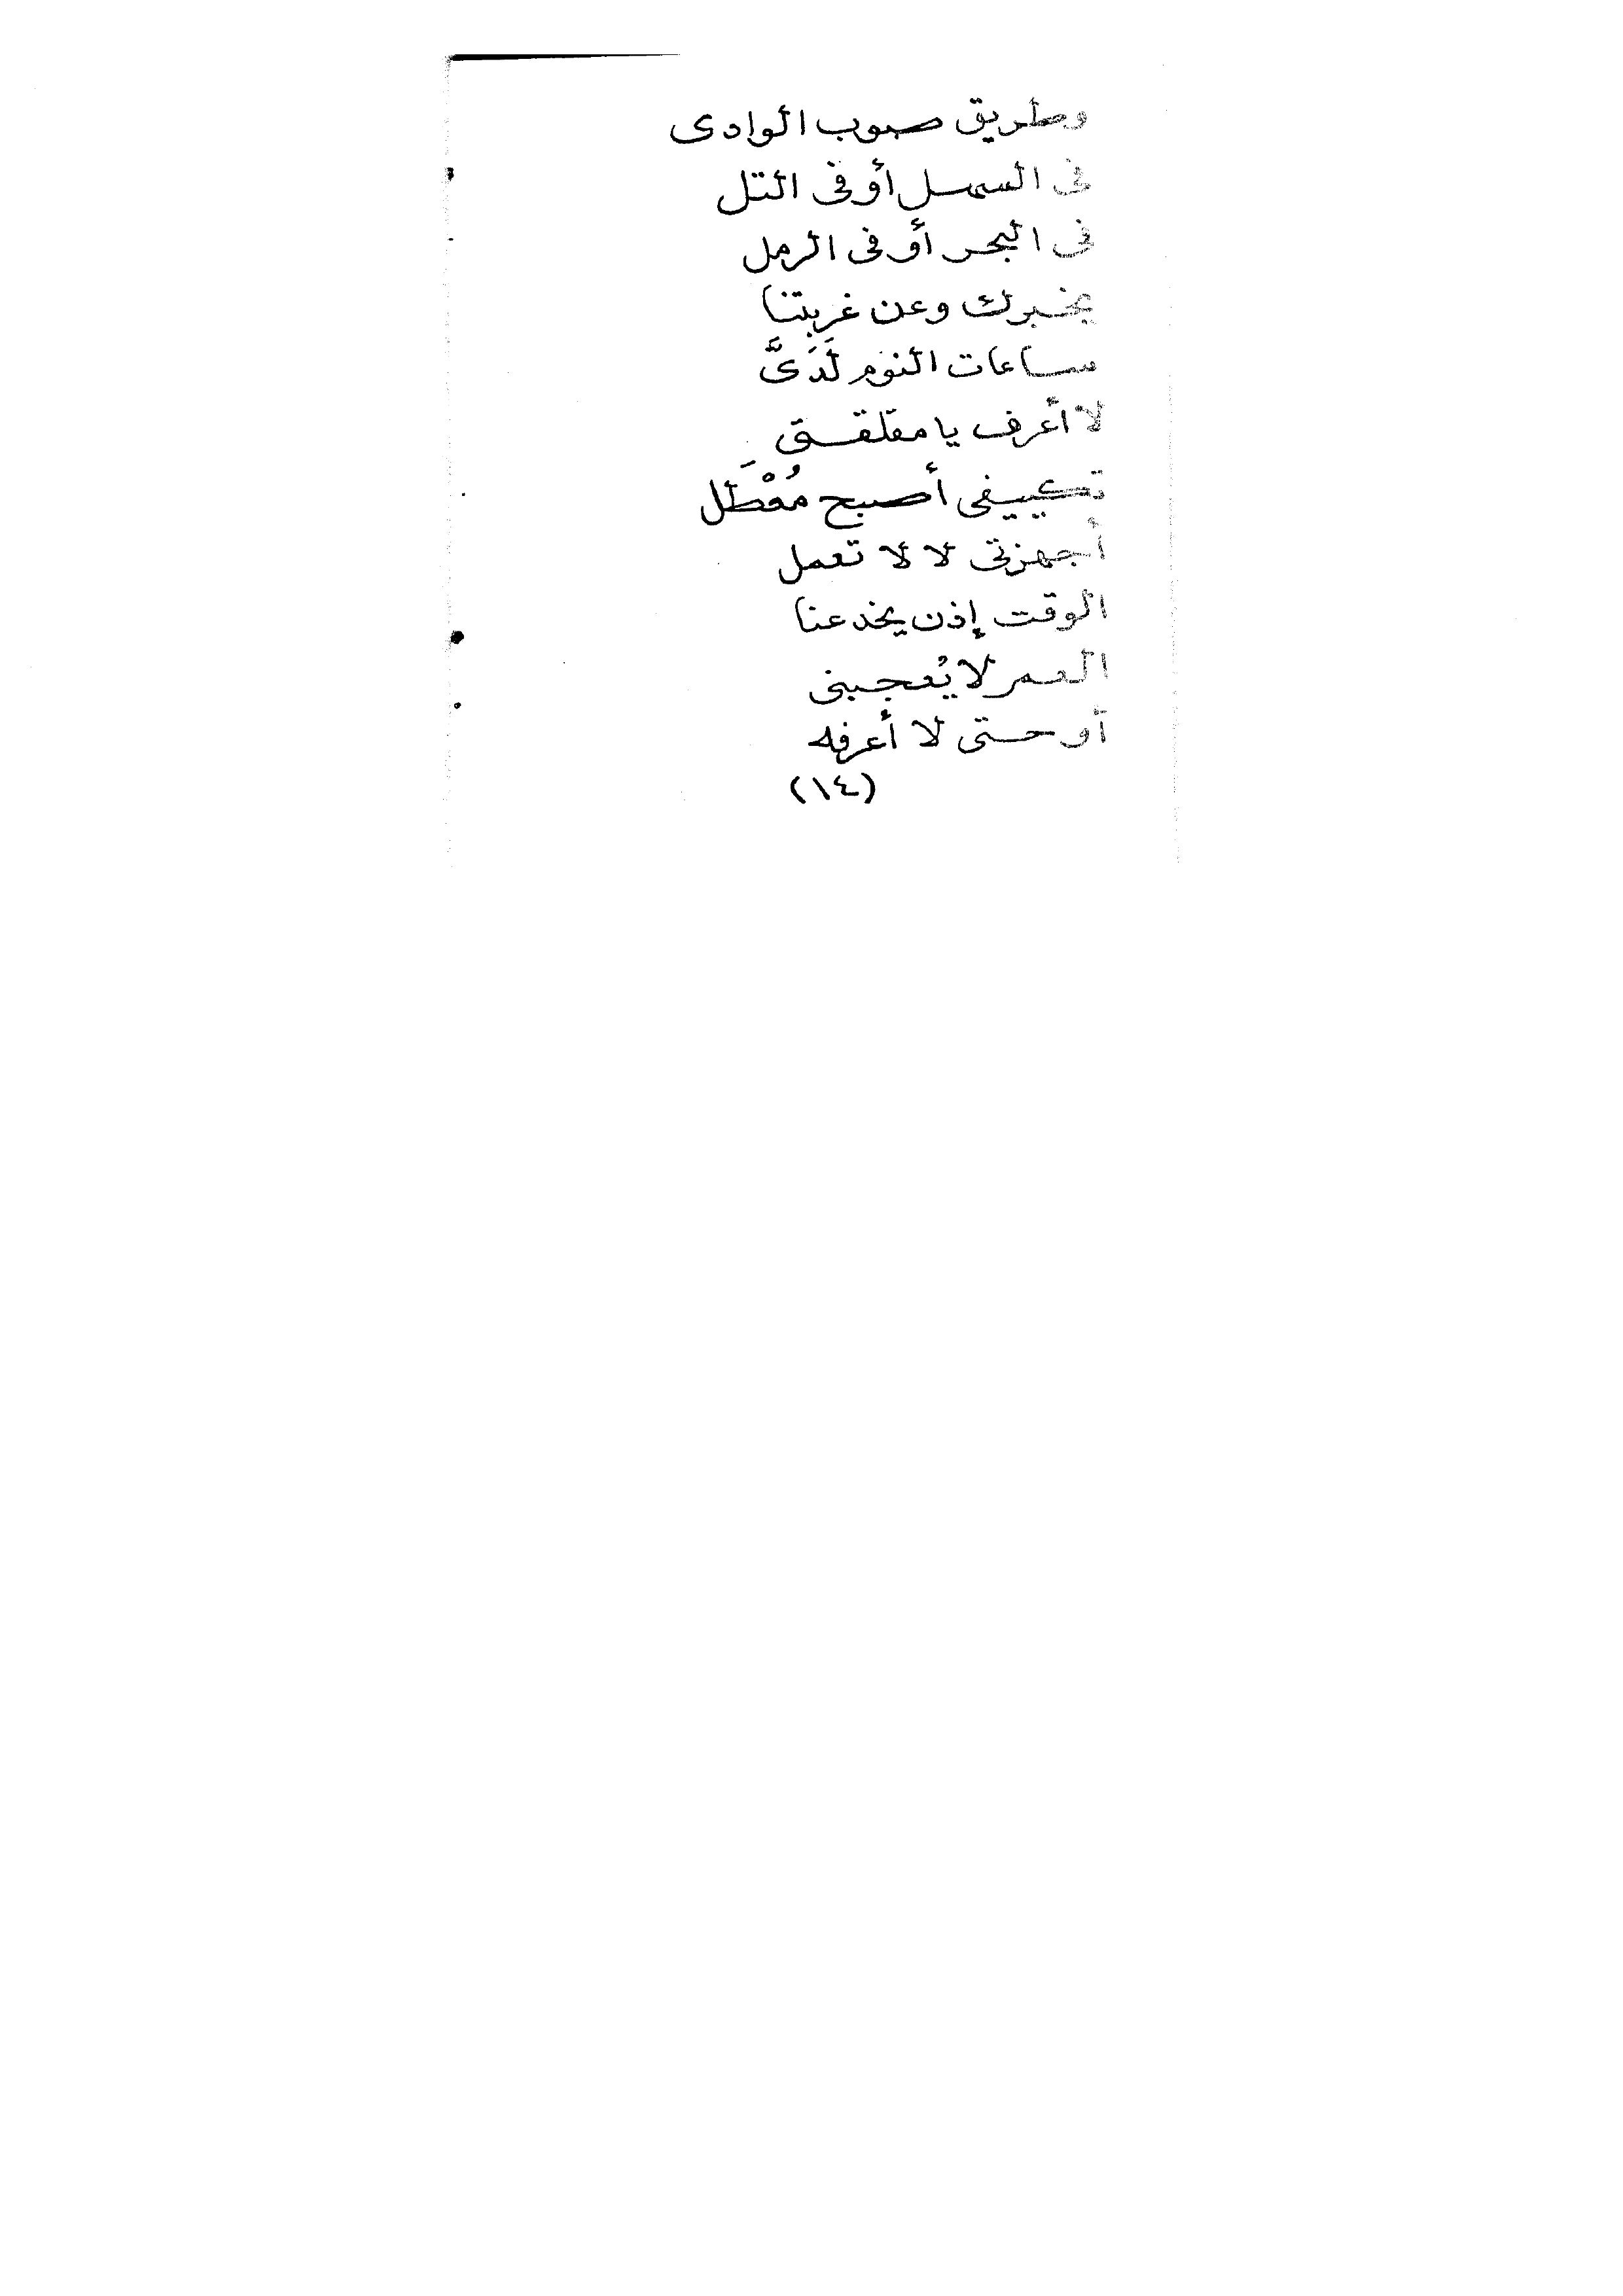 وطريق صوب الوادى
فى السهل أو فى التل
فى البحر أو فى الرمل
يخبرك وعن غربتنا
ساعات النوم لَدَىَّ
لا أعرف يا مقلقتى
تكييفى أصبح مُعْطَل
أجهزتى لا لا تعمل
الوقت إذن يخدعنا
العمر لا يُعجبنى
أو حتى لا أعرفه
(١٤)